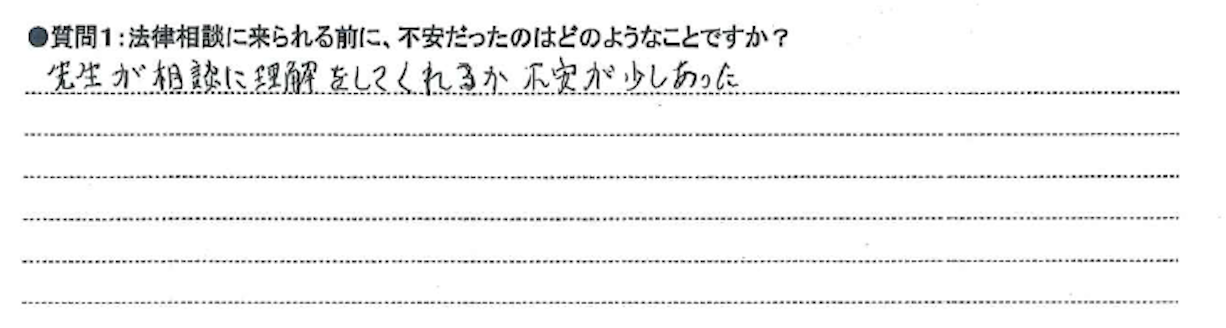 ●質問1:法律相談に来られる前に、不安だったのはどのようなことですか?
先生が相談に理解をしてくれるか不安が少しあった